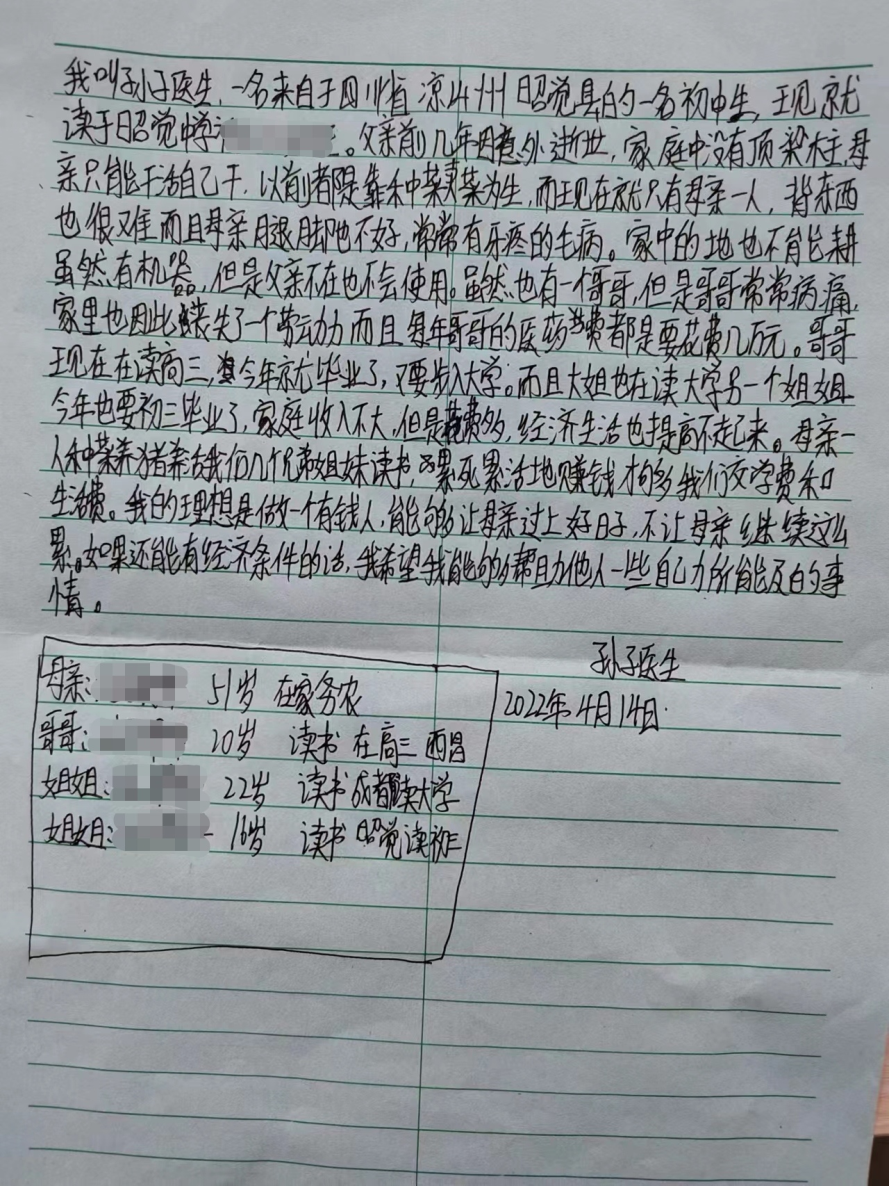 我叫孙子医生，一名来自于四川省凉山州昭觉县的一名初中生，现就
读于昭觉中学 。父亲前几年因意外逝世，家庭中没有顶梁柱，母
亲只能干活自己干，以前都是靠种菜卖菜为生，而现在就只有母亲一人，背东西
也很难而且母亲腿脚也不好，常常有牙疼的毛病。家中的地也不能耕
虽然有机器，但是父亲不在也不会使用。虽然也有一个哥哥，但是哥哥常常病痛，
家里也因此丧失了一个劳动力而且每年哥哥的医药费都是要花费几万元。哥哥
现在在读高三，今年就毕业了，又要步入大学。而且大姐也在读大学另一个姐姐
今年也要初三毕业了，家庭收入不大，但是花费多，经济生活也提高不起来。母亲一
人种菜养猪养活我们几个兄弟姐妹读书，累死累活地赚钱才够我们交学费和
生活费。我的理想是做一个有钱人，能够让母亲过上好日子，不让母亲继续这么
累。如果还能有经济条件的话，我希望我能够帮助他人一些自己力所能及的事
情。
孙子医生
2022年4月14日
母亲： 51岁 在家务农
哥哥： 20岁 读书 在高三 西昌
姐姐： 22岁 读书 成都读大学
姐姐： 16岁 读书 昭觉读初三